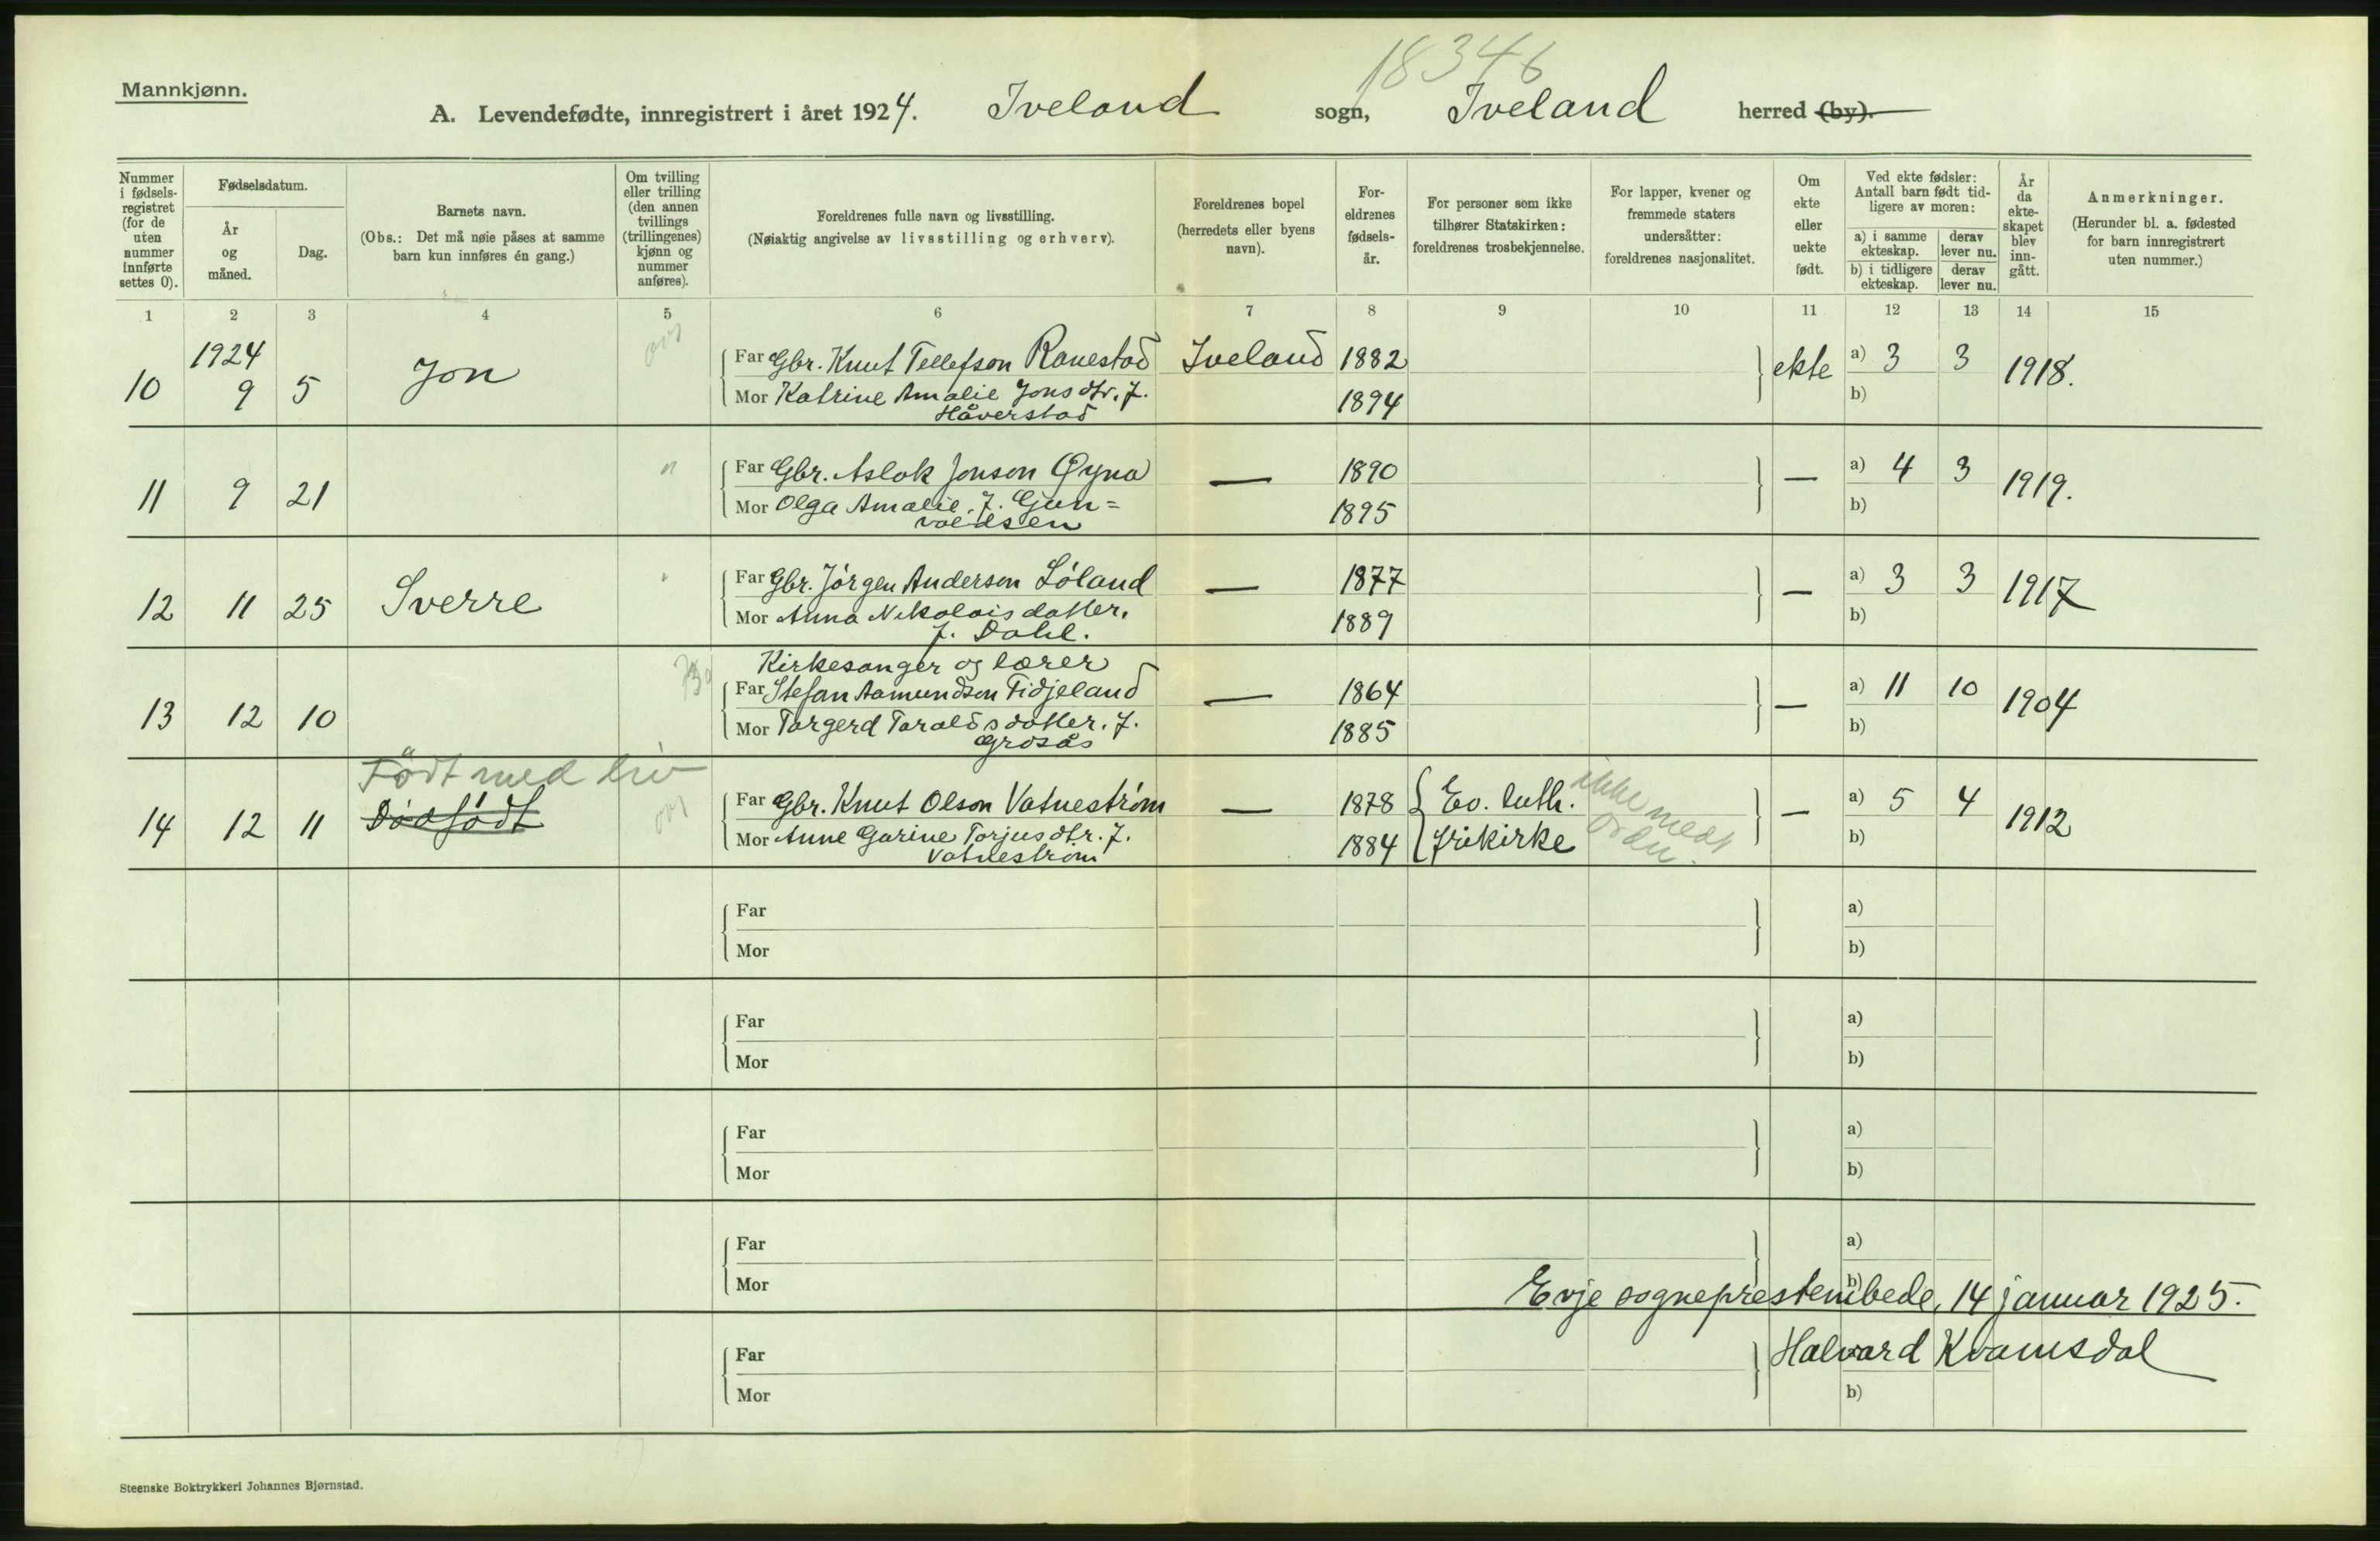 18346
Mannkjønn.
A. Levendefødte, innregistrert i året 1924. Iveland sogn, Iveland herred (by).
Nummer i fødselsregistret (for de uten nummer innførte settes 0).
Fødselsdatum.
År og måned.
Dag.
Barnets navn.
(Obs.: Det må nøie påses at samme barn kun innføres én gang.)
Om tvilling eller trilling (den annen tvillings (trillingenes) kjønn og nummer anføres).
Foreldrenes fulle navn og livsstilling.
(Nøiaktig angivelse av livsstilling og erhverv).
Foreldrenes bopel (herredets eller byens navn).
Foreldrenes fødselsår.
For personer som ikke tilhører Statskirken: foreldrenes trosbekjennelse.
For lapper, kvener og fremmede staters undersåtter: foreldrenes nasjonalitet.
Om ekte eller uekte født.
Ved ekte fødsler: Antall barn født tidligere av moren:
a) i samme ekteskap. derav lever nu.
b) i tidligere ekteskap. derav lever nu.
År da ekteskapet blev inngått.
Anmerkninger.
(Herunder bl. a. fødested for barn innregistrert uten nummer.)
1 2 3 4 5 6 7 8 9 10 11 12 13 14 15
1924
10 9 5 Jon Far Gbr. Knut Tellefson Ranestad Iveland 1882 ekte a) 3 3 1918.
Mor Katrine Amalie Jonsdtr. f. 1894 b)
Håverstad
11 9 21 Far Gbr. Aslak Jonson Øyna — 1890 — a) 4 3 1919.
Mor Olga Amalie f. Gun= 1895 b)
valdsen
12 11 25 Sverre Far Gbr. Jørgen Anderson Løland — 1877 — a) 3 3 1917
Mor Anna Nikolaisdatter. 1889 b)
f. Dahl.
Kirkesanger og lærer
13 12 10 Far Stefan Aamundson Fidjeland — 1864 — a) 11 10 1904
Mor Targerd Taraldsdatter. f. 1885 b)
Grosås
Født med liv
14 12 11 Dødfødt Far Gbr. Knut Olson Vatnestrøm — 1878 Ev. luth. ikke med — a) 5 4 1912
Mor Anne Gurine Torjusdtr. f. 1884 frikirke b)
Vatnestrøm
Far a)
Mor b)
Far a)
Mor b)
Far a)
Mor b)
Far a)
Mor b)
Evje sogneprestembede, 14 januar 1925.
Far Halvard Kvamsdal
Mor b)
Steenske Boktrykkeri Johannes Bjørnstad.